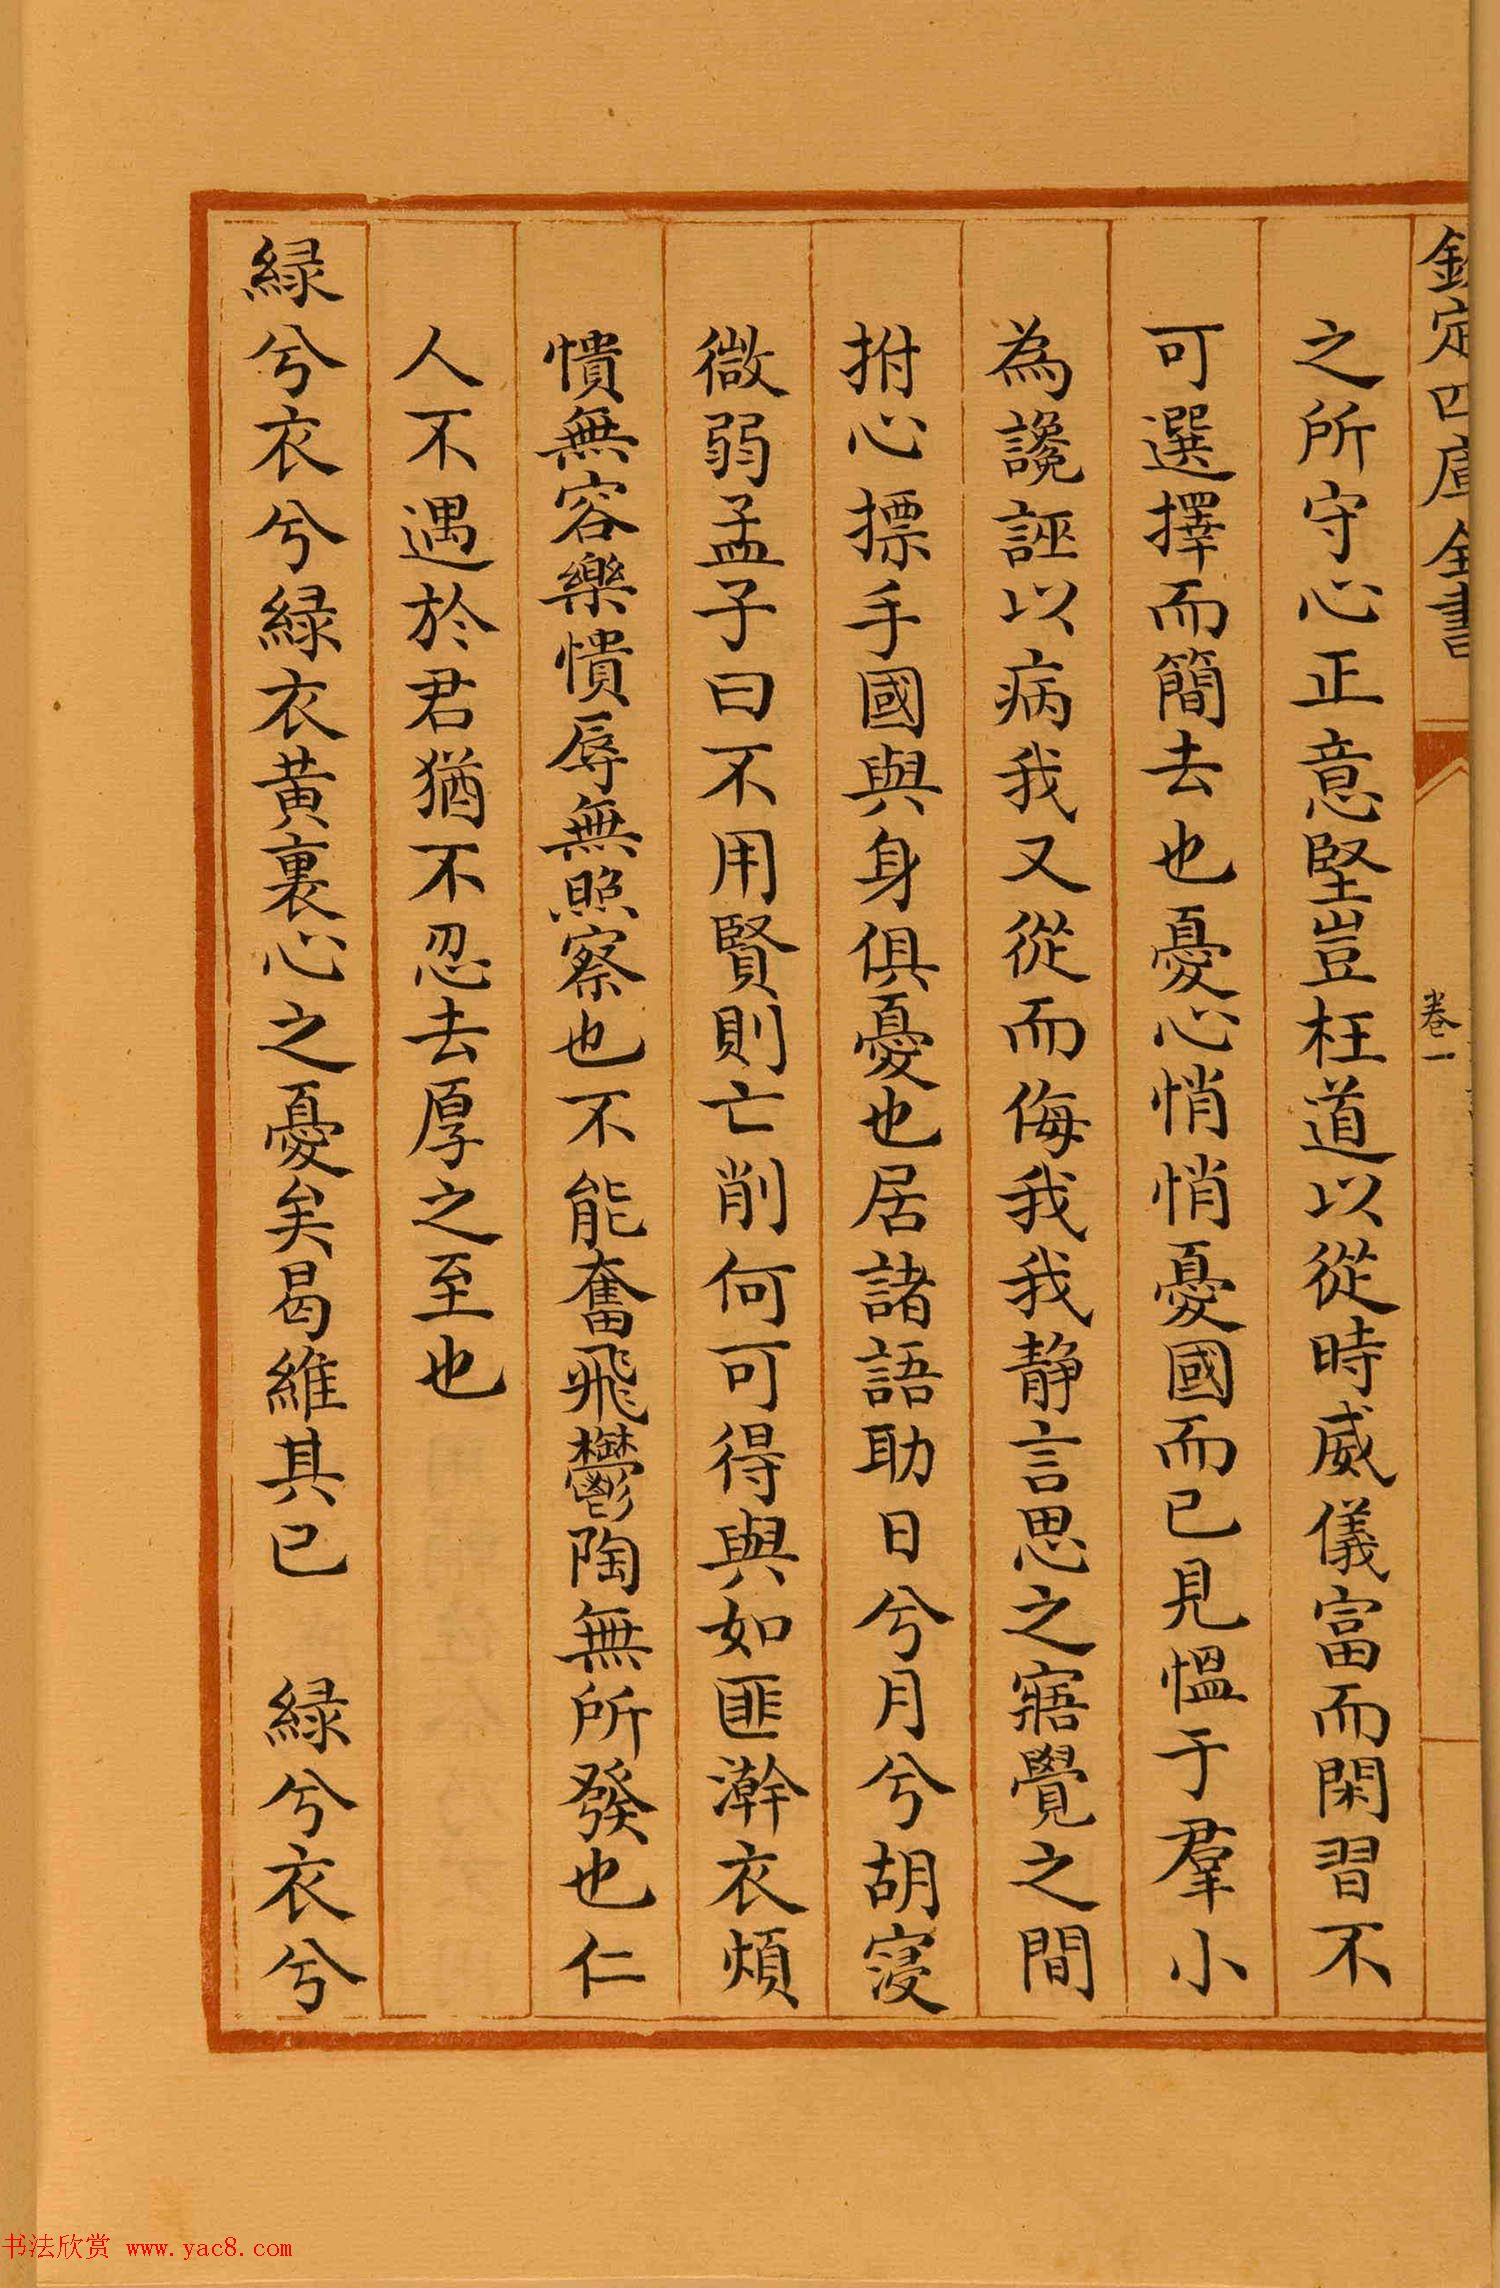 欽定四庫全書
卷一
之所守心正意堅豈枉道以從時威儀富而閑習不
可選擇而簡去也憂心悄悄憂國而已見愠于羣小
為讒誣以病我又從而侮我我静言思之寤覺之間
拊心摽手國與身俱憂也居諸語助日兮月兮胡寖
微弱孟子曰不用賢則亡削何可得與如匪澣衣煩
憒無容樂憒辱無照察也不能奮飛鬱陶無所發也仁
人不遇於君猶不忍去厚之至也
緑兮衣兮緑衣黄裏心之憂矣曷維其已　緑兮衣兮
书法欣赏 www.yac8.com